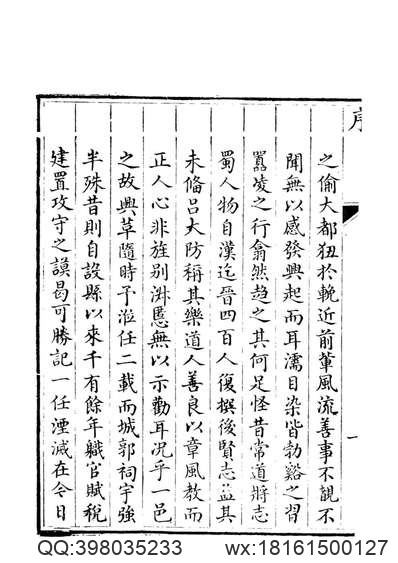 序
一
之偷大都狃於輓近前軰風流善事不覩不
聞無以感發興起而耳濡目染皆勃谿之習
嚚凌之行翕然趋之其何足怪昔常道將志
蜀人物自漢迄晉四百人復撰後賢志益其
未偹吕大防稱其樂道人善良以章風教而
正人心非旌别淑慝無以示勸耳况乎一邑
之故興革隨時予涖任二載而城郭祠宇强
半殊昔則自設縣以來千有餘年職官賦稅
建置攻守之謨曷可勝記一任湮滅在令日
QQ:398035233 wx:18161500127